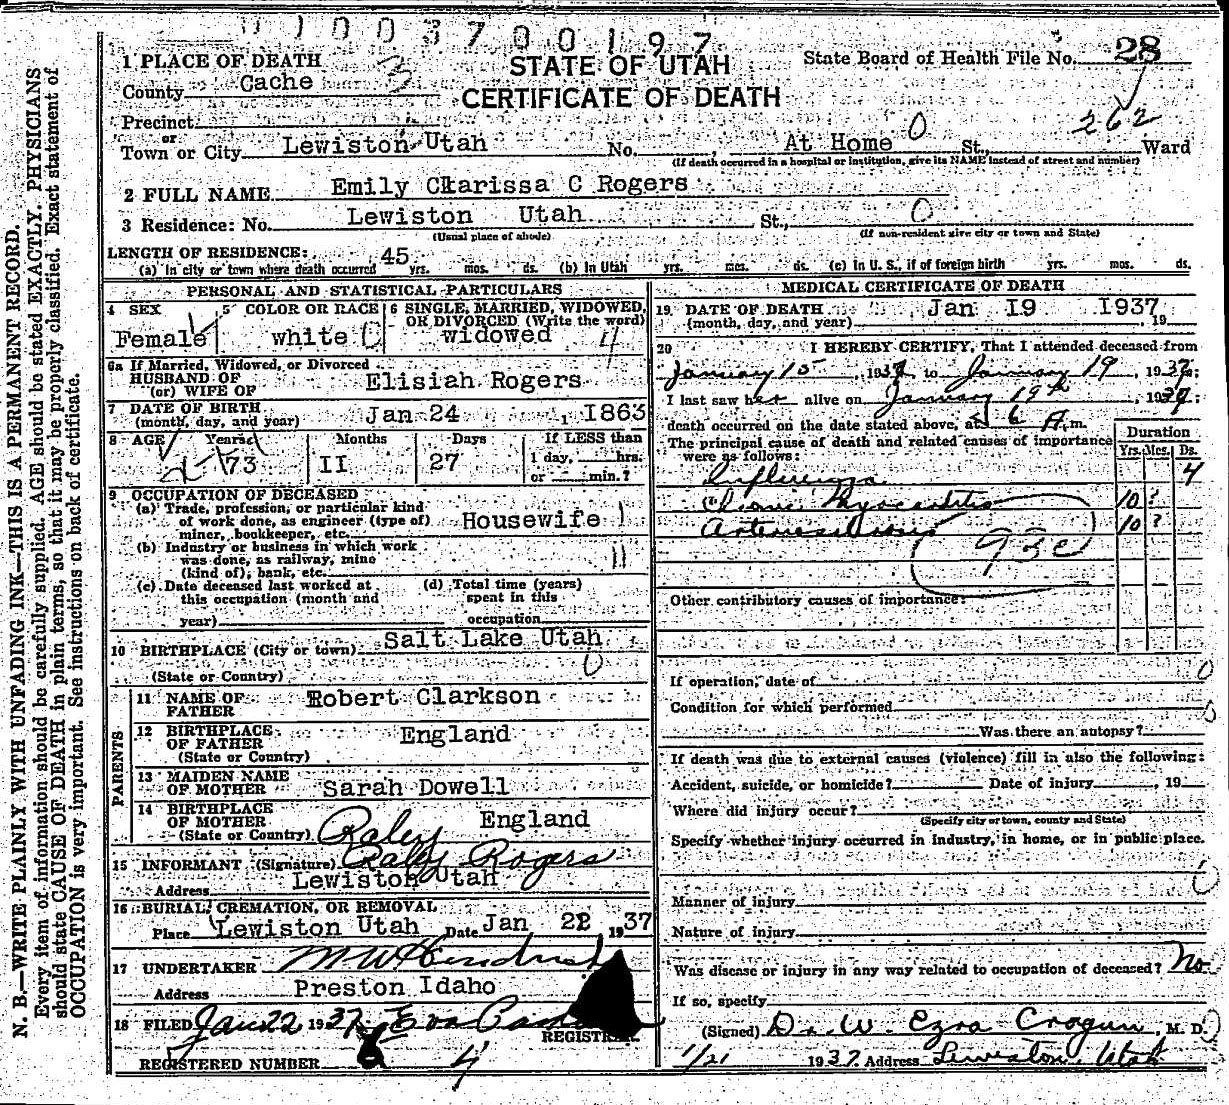 0100370 0197
STATE OF UTAH
CERTIFICATE OF DEATH
State Board of Health File No. 28
262
1 PLACE OF DEATH
County Cache 3
Precinct
or
Town or City Lewiston Utah No. At Home 0 St., Ward
(If death occurred in a hospital or institution, give its NAME instead of street and number)
2 FULL NAME Emily Clarissa C Rogers
3 Residence: No. Lewiston Utah St., 0
(Usual place of abode) (If non-resident give city or town and State)
LENGTH OF RESIDENCE:
(a) In city or town where death occurred 45 yrs. mos. ds. (b) In Utah yrs. mos. ds. (c) In U. S., if of foreign birth yrs. mos. ds.
PERSONAL AND STATISTICAL PARTICULARS
4 SEX 5 COLOR OR RACE 6 SINGLE, MARRIED, WIDOWED, OR DIVORCED (Write the word)
Female white widowed 4
6a If Married, Widowed, or Divorced
HUSBAND OF
(or) WIFE OF Elisiah Rogers
7 DATE OF BIRTH
(month, day, and year) Jan 24, 1863
8 AGE Years Months Days If LESS than
1 day, hrs.
73 II 27 or min.?
9 OCCUPATION OF DECEASED
(a) Trade, profession, or particular kind
of work done, as engineer (type of) Housewife
miner, bookkeeper, etc.
(b) Industry or business in which work
was done, as railway, mine
(kind of), bank, etc. 11
(c) Date deceased last worked at (d) Total time (years)
this occupation (month and spent in this
year) occupation
10 BIRTHPLACE (City or town) Salt Lake Utah
(State or Country) 0
PARENTS
11 NAME OF
FATHER Robert Clarkson
12 BIRTHPLACE
OF FATHER England
(State or Country)
13 MAIDEN NAME
OF MOTHER Sarah Dowell
14 BIRTHPLACE
OF MOTHER England
(State or Country) Raley
15 INFORMANT (Signature) Raley Rogers
Address Lewiston Utah
16 BURIAL, CREMATION, OR REMOVAL
Place Lewiston Utah Date Jan 22 1937
17 UNDERTAKER
Address Preston Idaho
18 FILED Jan 22 1937 Eva
REGISTRAR
REGISTERED NUMBER 6 4
MEDICAL CERTIFICATE OF DEATH
19 DATE OF DEATH Jan 19 1937
(month, day, and year) 19
20 I HEREBY CERTIFY, That I attended deceased from
January 15, 1937 to January 19, 1937;
I last saw her alive on January 19th, 1937;
death occurred on the date stated above, at 6 A. m.
The principal cause of death and related causes of importance
were as follows:
Duration
Yrs. Mos. Ds.
Influenza 4
Chronic Myocarditis 10 ?
Arteriosclerosis 10 ?
93c
Other contributory causes of importance:
If operation, date of 0
Condition for which performed
Was there an autopsy?
If death was due to external causes (violence) fill in also the following:
Accident, suicide, or homicide? Date of injury, 19
Where did injury occur?
(Specify city or town, county and State)
Specify whether injury occurred in industry, in home, or in public place.
Manner of injury
Nature of injury
Was disease or injury in any way related to occupation of deceased? No
If so, specify
(Signed) Dr. W. Ezra Cragun, M. D.
1/21 1937 Address Lewiston, Utah
N. B.—WRITE PLAINLY WITH UNFADING INK—THIS IS A PERMANENT RECORD.
Every item of information should be carefully supplied. AGE should be stated EXACTLY. PHYSICIANS
should state CAUSE OF DEATH in plain terms, so that it may be properly classified. Exact statement of
OCCUPATION is very important. See instructions on back of certificate.